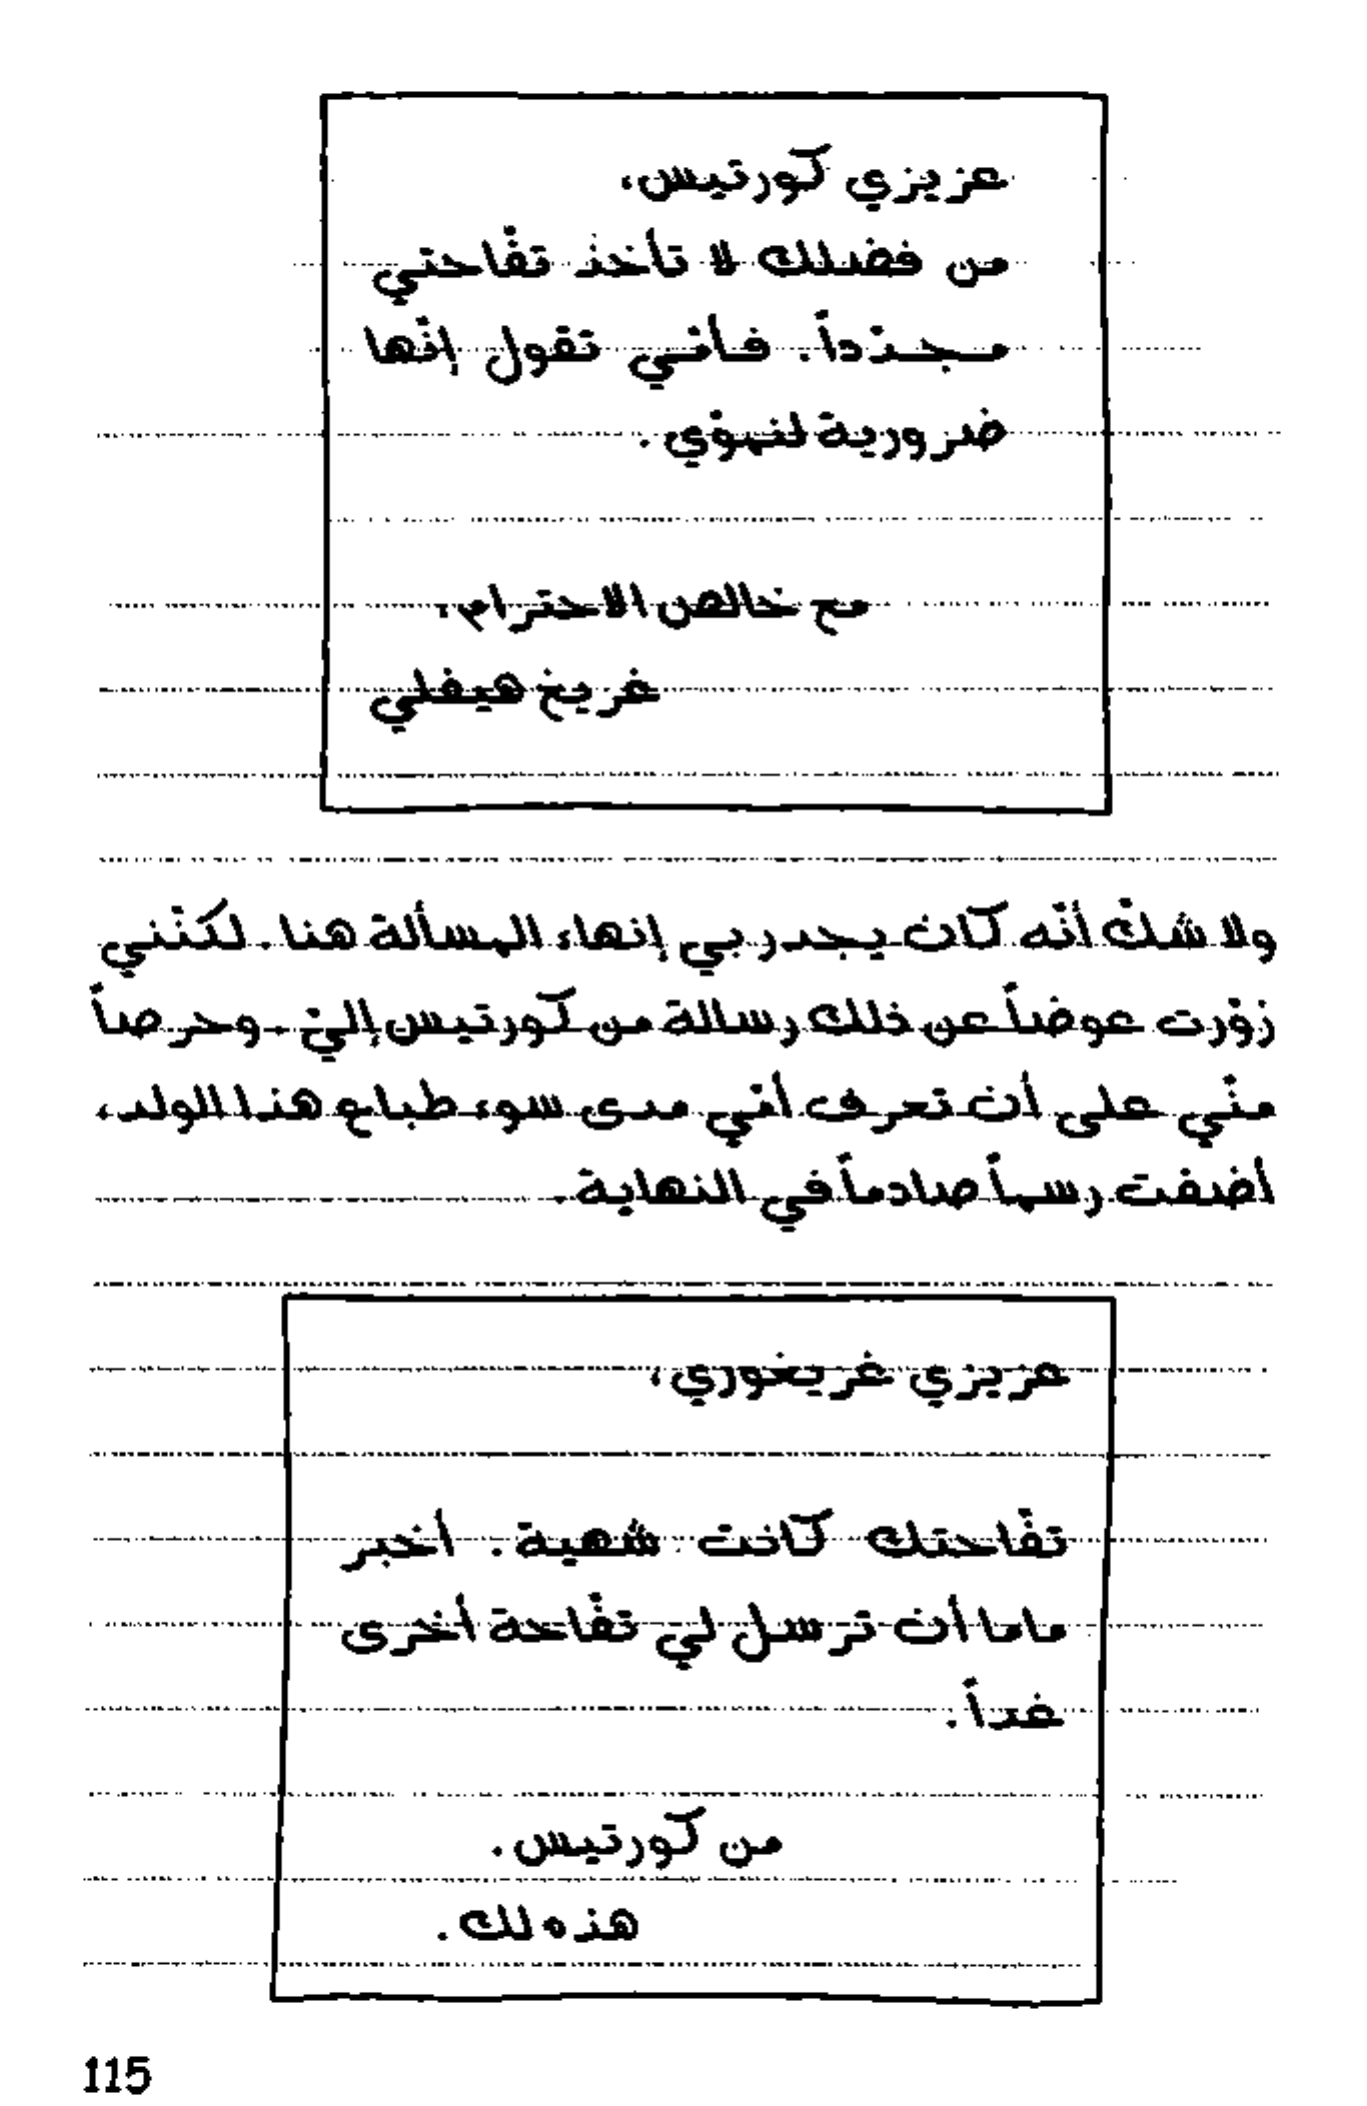 عزيزي كورتيس،
من فضلك لا تأخذ تفّاحتي
مجدّداً. فأمّي تقول إنّها
ضرورية لنموّي.
مع خالص الاحترام،
غريغ هيفلي
ولا شكّ أنّه كان يجدر بي إنهاء المسألة هنا. لكنّني
زوّرت عوضاً عن ذلك رسالة من كورتيس إليّ. وحرصاً
منّي على أن تعرف أمّي مدى سوء طباع هذا الولد،
أضفت رسماً صادماً في النهاية.
عزيزي غريغوري،
تفّاحتك كانت شهية. أخبر
ماما أن ترسل لي تفّاحة أخرى
غداً.
من كورتيس.
هذه لك.
115